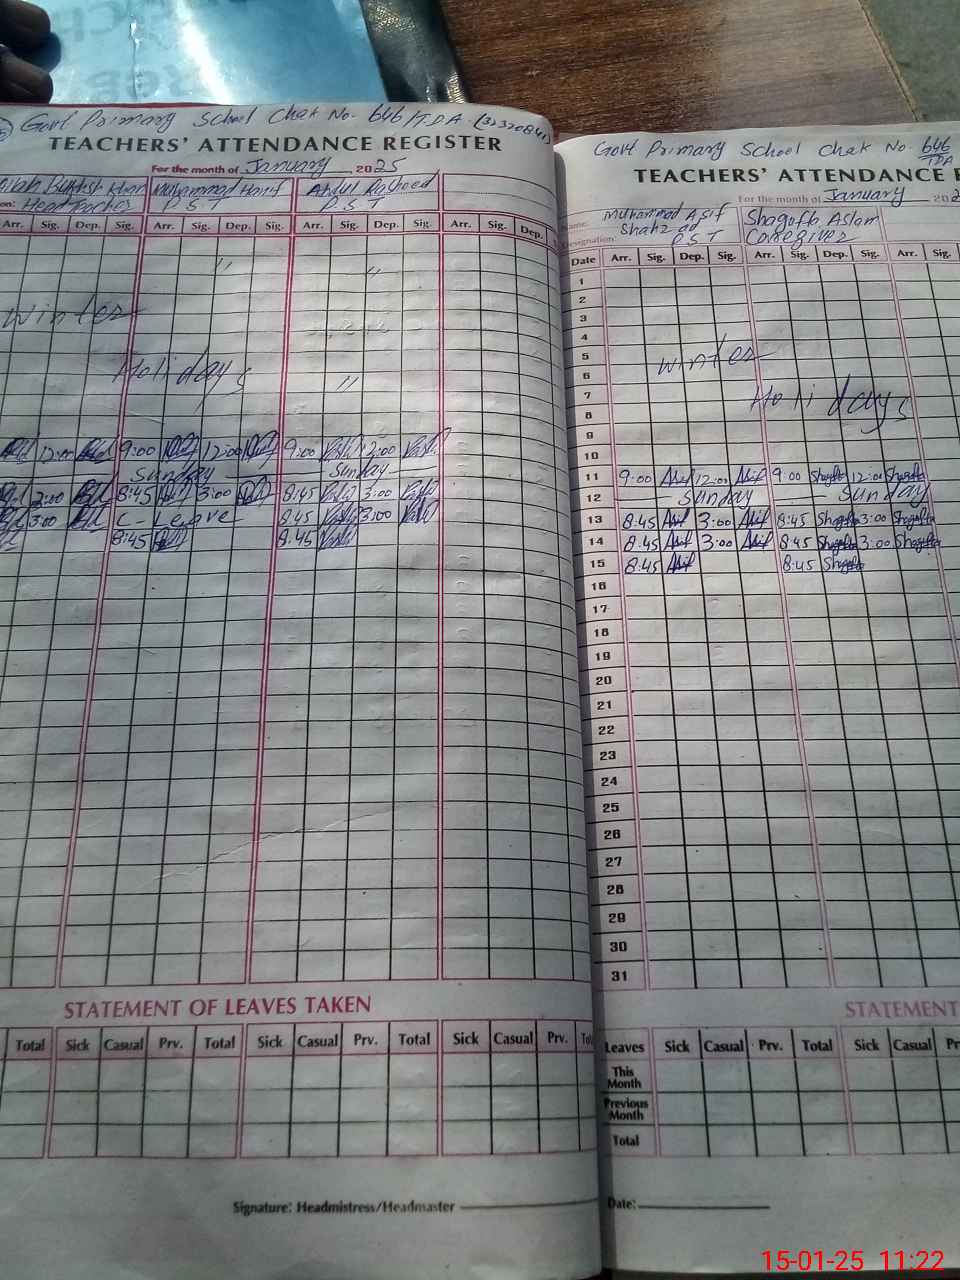 Govt Primary School Chak No. 646/TDA (32320841)
TEACHERS' ATTENDANCE REGISTER
For the month of January 2025
Khan Muhammad Hanif Abdul Rasheed
on: Head Teacher P.S.T P.S.T
Arr. Sig. Dep. Sig. Arr. Sig. Dep. Sig. Arr. Sig. Dep. Sig. Arr. Sig. Dep.
"
"
Winter
Holidays
"
12:00 9:00 12:00 9:00 12:00
Sunday Sunday
3:00 8:45 3:00 8:45 3:00
3:00 C-Leave 8:45 3:00
8:45 8:45
STATEMENT OF LEAVES TAKEN
Total Sick Casual Prv. Total Sick Casual Prv. Total Sick Casual Prv. Tot
Signature: Headmistress/Headmaster
Govt Primary School Chak No. 646/TDA
TEACHERS' ATTENDANCE R
For the month of January 202
Name: Muhammad Asif Shahzad Shagufta Aslam
Designation: P.S.T Caregiver
Date Arr. Sig. Dep. Sig. Arr. Sig. Dep. Sig. Arr. Sig.
1
2
3
4
5 Winter
6
7 Holidays
8
9
10
11 9:00 Asif 12:00 Asif 9:00 Shagufta 12:00 Shagufta
12 Sunday Sunday
13 8:45 Asif 3:00 Asif 8:45 Shagufta 3:00 Shagufta
14 8:45 Asif 3:00 Asif 8:45 Shagufta 3:00 Shagufta
15 8:45 Asif 8:45 Shagufta
16
17
18
19
20
21
22
23
24
25
26
27
28
29
30
31
STATEMENT
Leaves Sick Casual Prv. Total Sick Casual Pr
This Month
Previous Month
Total
Date:
15-01-25 11:22